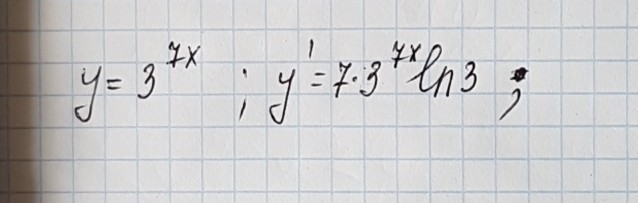 y = 3^{7x} ; y' = 7·3^{7x} ln 3 ;